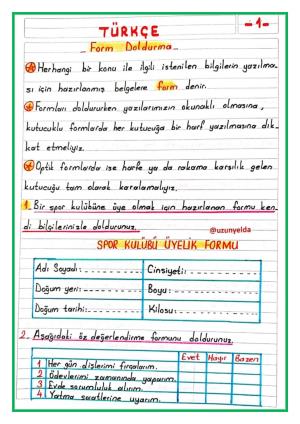 -1-
TÜRKÇE
Form Doldurma
Herhangi bir konu ile ilgili istenilen bilgilerin yazılma-
sı için hazırlanmış belgelere form denir.
Formları doldururken yazılarımızın okunaklı olmasına,
kutucuklu formlarda her kutucuğa bir harf yazılmasına dik-
kat etmeliyiz.
Optik formlarda ise harfe ya da rakama karşılık gelen
kutucuğu tam olarak karalamalıyız.
1. Bir spor kulübüne üye olmak için hazırlanan formu ken-
di bilgilerinizle doldurunuz.
@uzunyelda
SPOR KULÜBÜ ÜYELİK FORMU
Adı Soyadı: Cinsiyeti:
Doğum yeri: Boyu:
Doğum tarihi: Kilosu:
2. Aşağıdaki öz değerlendirme formunu doldurunuz.
Evet Hayır Bazen
1 Her gün dişlerimi fırçalarım.
2 Ödevlerimi zamanında yaparım.
3 Evde sorumluluk alırım.
4 Yatma saatlerine uyarım.